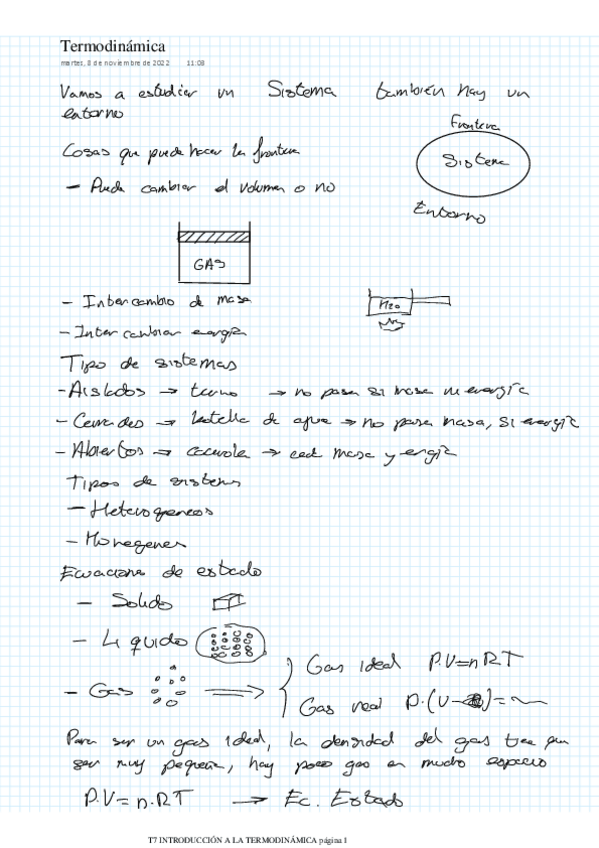 Termodinámica
martes, 8 de noviembre de 2022 11:08
Vamos a estudiar un Sistema también hay un
entorno
Frontera
Cosas que puede hacer la frontera
Sistema
- Puede cambiar el volumen o no
Entorno
GAS
- Intercambio de masa
H2O
- Intercambiar energía
Tipo de sistemas
- Aislados → termo → no pasa ni masa ni energía
- Cerrados → botella de agua → no pasa masa, si energía
- Abiertos → cacerola → masa y energía
Tipos de sistemas
- Heterogeneos
- Homogenes
Ecuaciones de estado
- Solido
- Liquido
- Gas ⟹
Gas ideal P.V=nRT
Gas real P.(V-
Para ser un gas ideal, la densidad del gas tiene que
ser muy pequeña, hay poco gas en mucho espacio
P.V = n.RT → Ec. Estado
T7 INTRODUCCIÓN A LA TERMODINÁMICA página 1